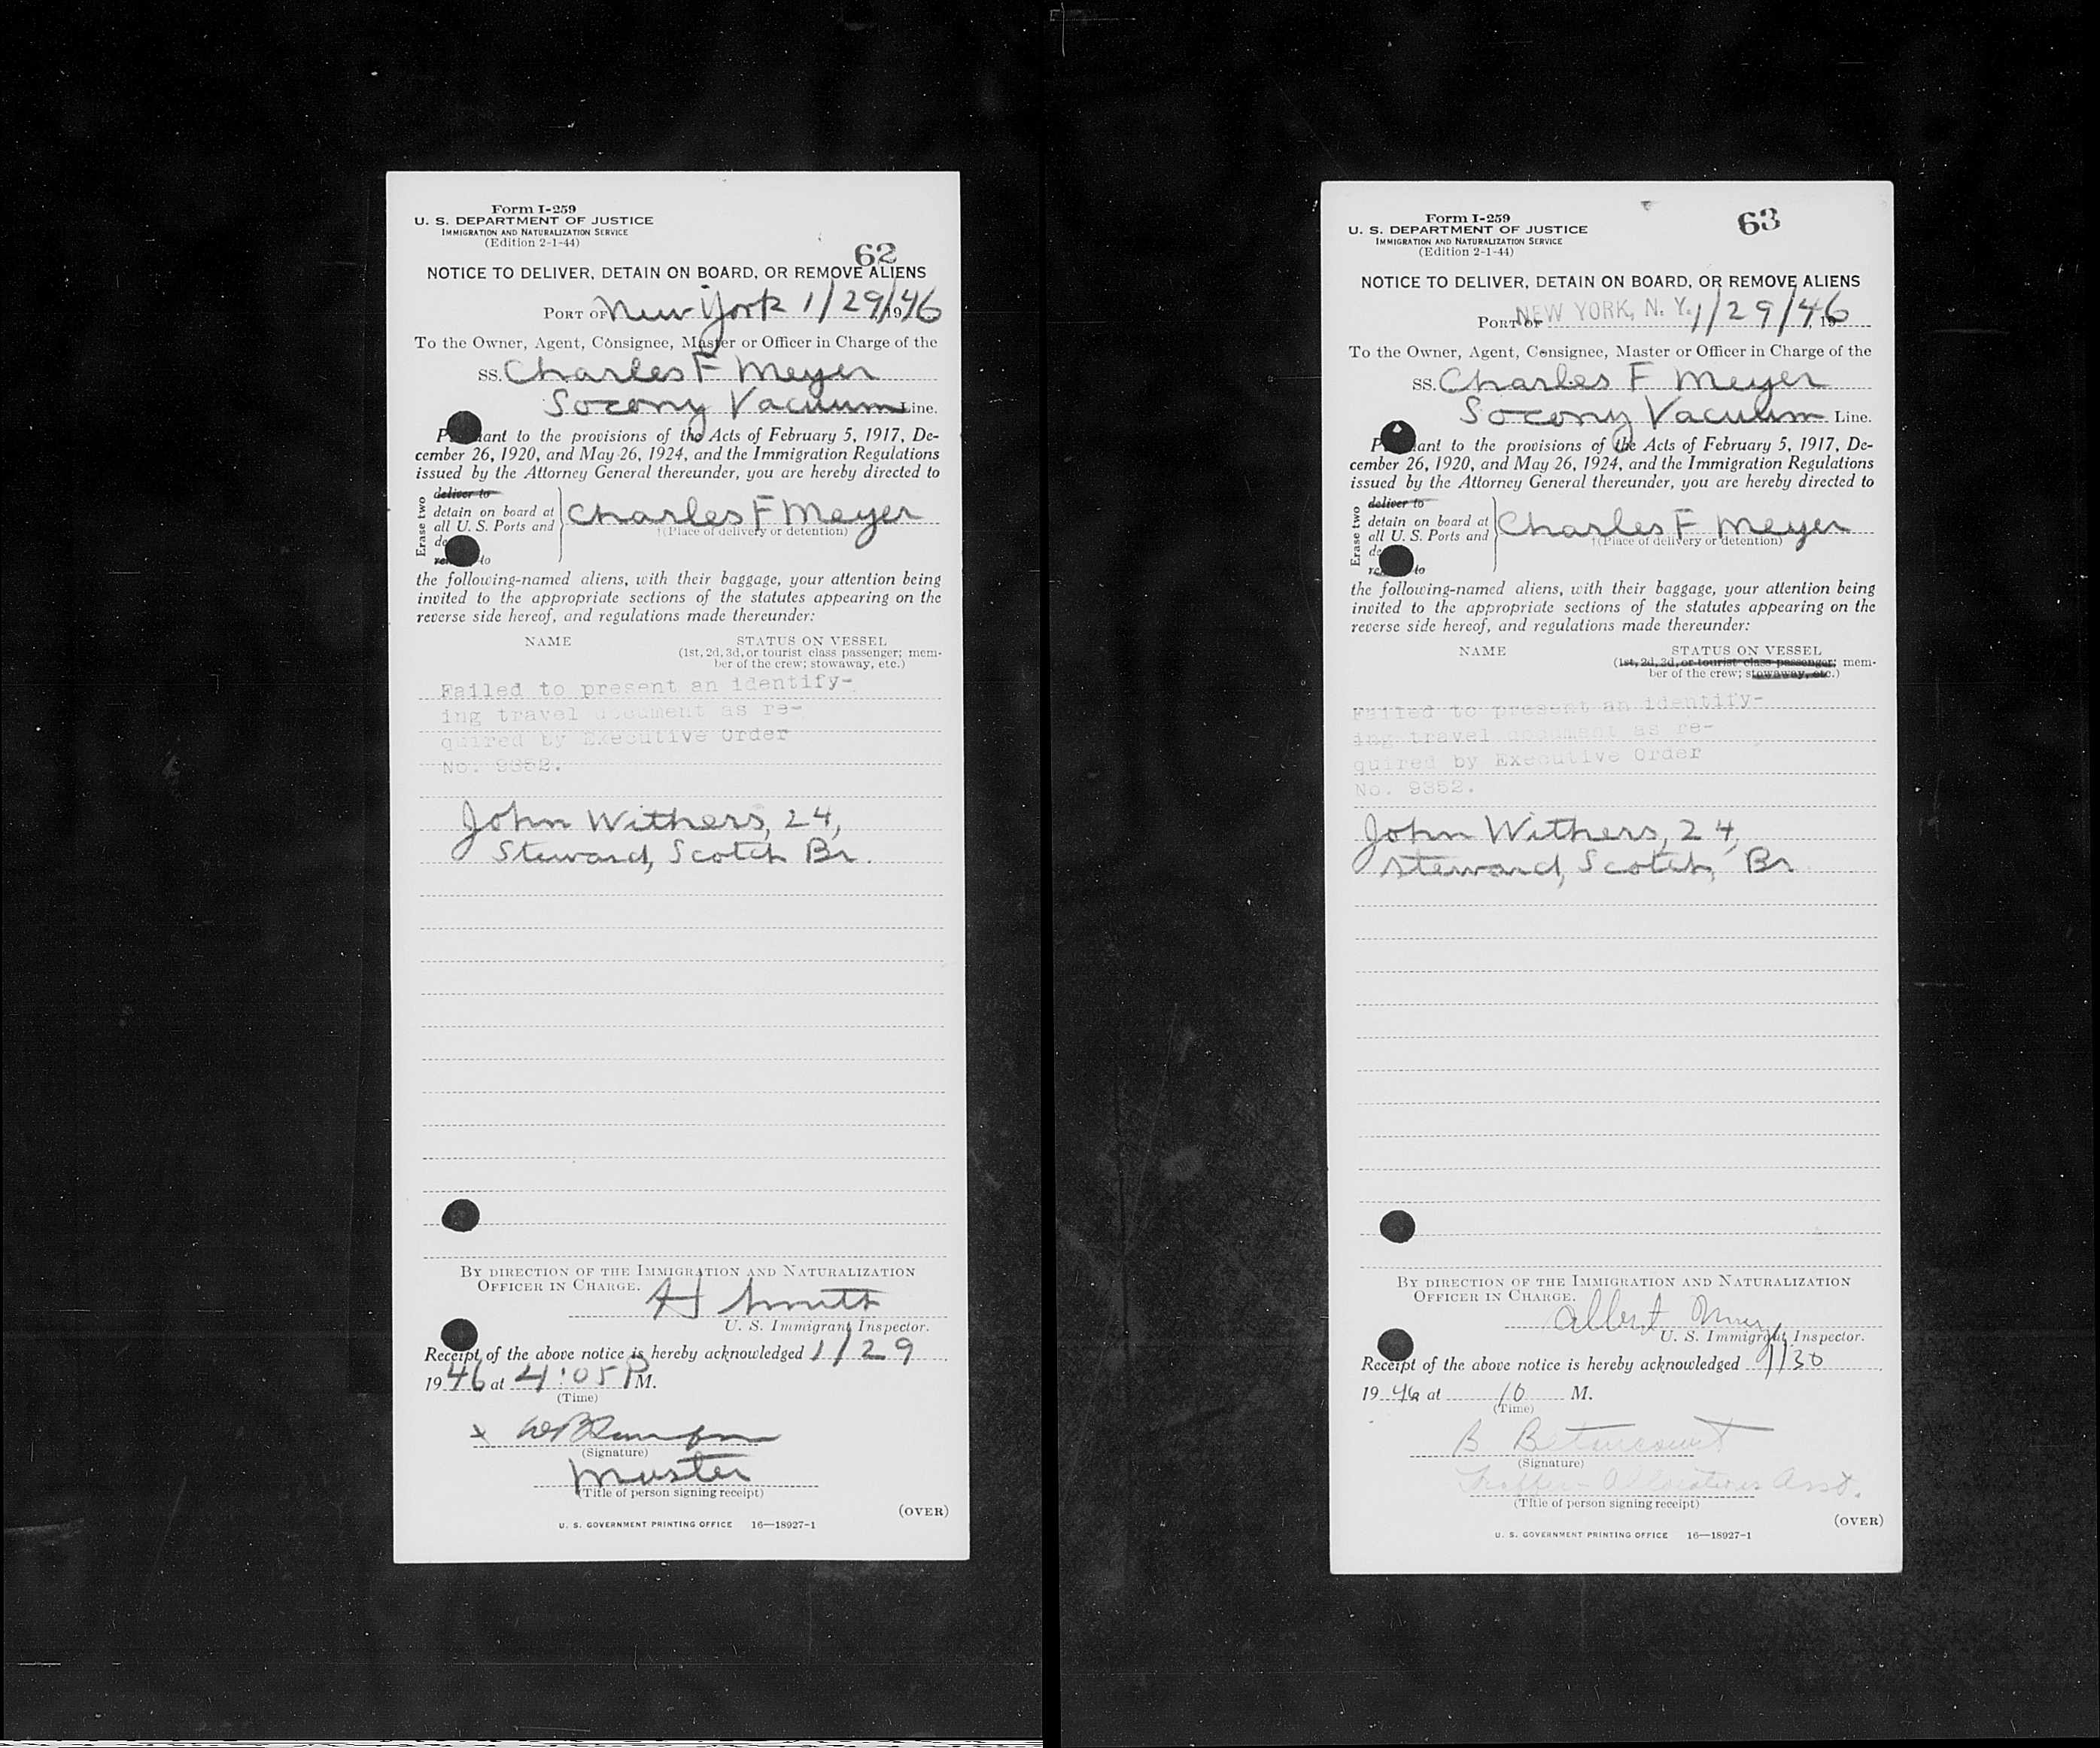 Form I-259
U. S. DEPARTMENT OF JUSTICE
IMMIGRATION AND NATURALIZATION SERVICE
(Edition 2-1-44)
62
NOTICE TO DELIVER, DETAIN ON BOARD, OR REMOVE ALIENS
PORT OF New York 1/29/1946
To the Owner, Agent, Consignee, Master or Officer in Charge of the
SS. Charles F Meyer
Socony Vacuum Line.
P ant to the provisions of the Acts of February 5, 1917, De-
cember 26, 1920, and May 26, 1924, and the Immigration Regulations
issued by the Attorney General thereunder, you are hereby directed to
Erase two
deliver to
detain on board at
all U. S. Ports and
de
to
Charles F Meyer
†(Place of delivery or detention)
the following-named aliens, with their baggage, your attention being
invited to the appropriate sections of the statutes appearing on the
reverse side hereof, and regulations made thereunder:
NAME STATUS ON VESSEL
(1st, 2d, 3d, or tourist class passenger; mem-
ber of the crew; stowaway, etc.)
Failed to present an identify-
ing travel document as re-
quired by Executive Order
No. 9352.
John Withers, 24,
Steward, Scotch Br.
BY DIRECTION OF THE IMMIGRATION AND NATURALIZATION
OFFICER IN CHARGE.
H Smith
U. S. Immigrant Inspector.
Receipt of the above notice is hereby acknowledged 1/29
1946 at 4:05 P M.
(Time)
x
(Signature)
Master
(Title of person signing receipt)
(OVER)
U. S. GOVERNMENT PRINTING OFFICE 16—18927-1
Form I-259
U. S. DEPARTMENT OF JUSTICE
IMMIGRATION AND NATURALIZATION SERVICE
(Edition 2-1-44)
63
NOTICE TO DELIVER, DETAIN ON BOARD, OR REMOVE ALIENS
PORT OF NEW YORK, N. Y. 1/29/46, 19
To the Owner, Agent, Consignee, Master or Officer in Charge of the
SS. Charles F Meyer
Socony Vacuum Line.
P ant to the provisions of the Acts of February 5, 1917, De-
cember 26, 1920, and May 26, 1924, and the Immigration Regulations
issued by the Attorney General thereunder, you are hereby directed to
Erase two
deliver to
detain on board at
all U. S. Ports and
de
to
Charles F Meyer
†(Place of delivery or detention)
the following-named aliens, with their baggage, your attention being
invited to the appropriate sections of the statutes appearing on the
reverse side hereof, and regulations made thereunder:
NAME STATUS ON VESSEL
(1st, 2d, 3d, or tourist class passenger; mem-
ber of the crew; stowaway, etc.)
Failed to present an identify-
ing travel document as re-
quired by Executive Order
No. 9352.
John Withers, 24,
Steward, Scotch, Br
BY DIRECTION OF THE IMMIGRATION AND NATURALIZATION
OFFICER IN CHARGE.
Albert
U. S. Immigrant Inspector.
Receipt of the above notice is hereby acknowledged 1/30
1946 at 10 M.
(Time)
B Betancourt
(Signature)
Asst.
(Title of person signing receipt)
(OVER)
U. S. GOVERNMENT PRINTING OFFICE 16—18927-1